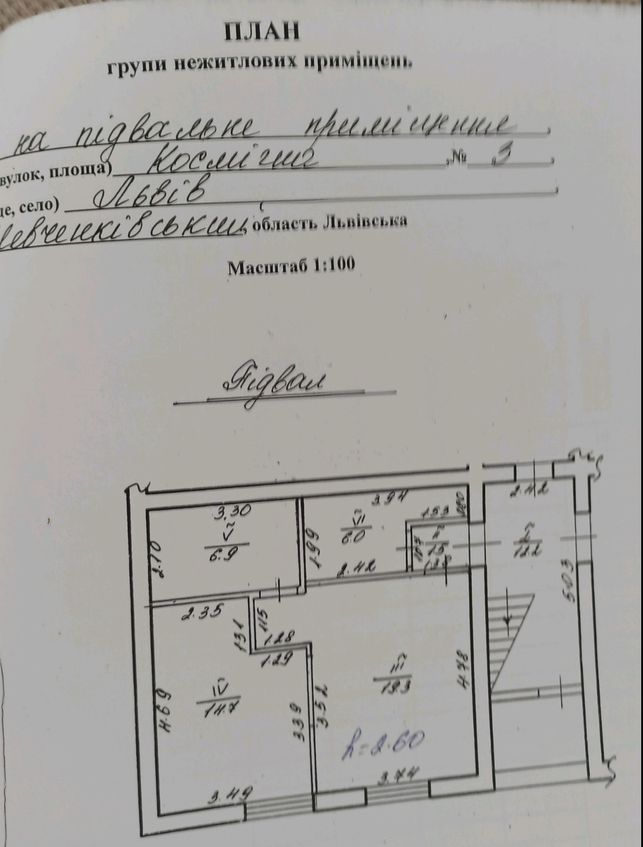 ПЛАН
групи нежитлових приміщень
на підвальне приміщення,
вулок, площа) Космічна ,№ 3,
це, село) Львів,
Шевченківський, область Львівська
Масштаб 1:100
Підвал
3.94 2.42
3.30 1.53
V 6.9 VI 6.0 II 1.5 I 12.2
2.10 1.99
2.42
5.03
2.35 1.31 1.15
1.28
1.29
IV 14.7 III 19.3
4.69 3.39 3.52 4.78
h=2.60
3.49 3.74